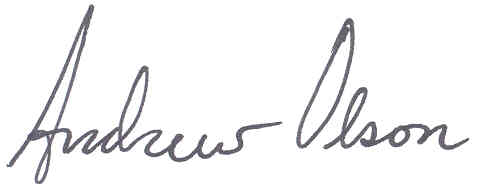 Andrew Olson